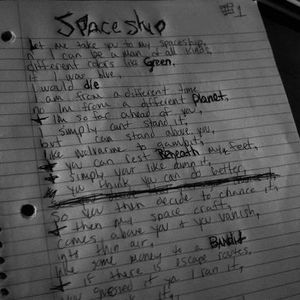 Spaceship
#1
Let me take you to my spaceship,
I can be a man of all kinds,
different colors like Green,
If I was blue,
I would die
I am from a different time
no Im from a different Planet,
Im so far ahead of you,
I simply cant stand it,
but I can stand above you,
like
you can rest Beneath my feet,
Simply your like damn it,
ya think you can do better,
So you then decide to chance it,
then my space craft,
comes above you & you vanish,
into thin air,
like some money to a Bandit
if there is escape routes,
you guessed it ya I ran it,